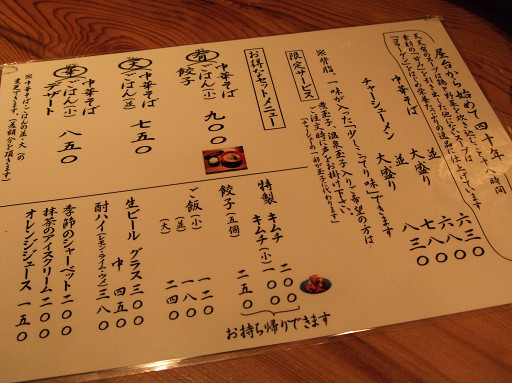 屋台から始めて四十年
中華そば 並 六三〇
大盛り 六八〇
チャーシューメン 並 七八〇
大盛り 八三〇
※背脂、一味が入った「ツーこってり味」できます
限定サービス
煮玉子、温泉玉子入りご希望の方は
ご注文時に声をお掛け下さい。
お得なセットメニュー
中華そば
ごはん(小)
餃子
九〇〇
中華そば
ごはん(並)
七五〇
中華そば
ごはん(小)
デザート
八五〇
特製キムチ 二〇〇
キムチ(小) 一〇〇
餃子(五個) 二五〇
ご飯(小) 一二〇
(並) 一八〇
(大) 二四〇
生ビール グラス 三〇〇
中 四五〇
酎ハイ(レモン・ライム・ウメ) 三八〇
季節のシャーベット 二〇〇
抹茶のアイスクリーム 二〇〇
オレンジジュース 一五〇
お持ち帰りできます